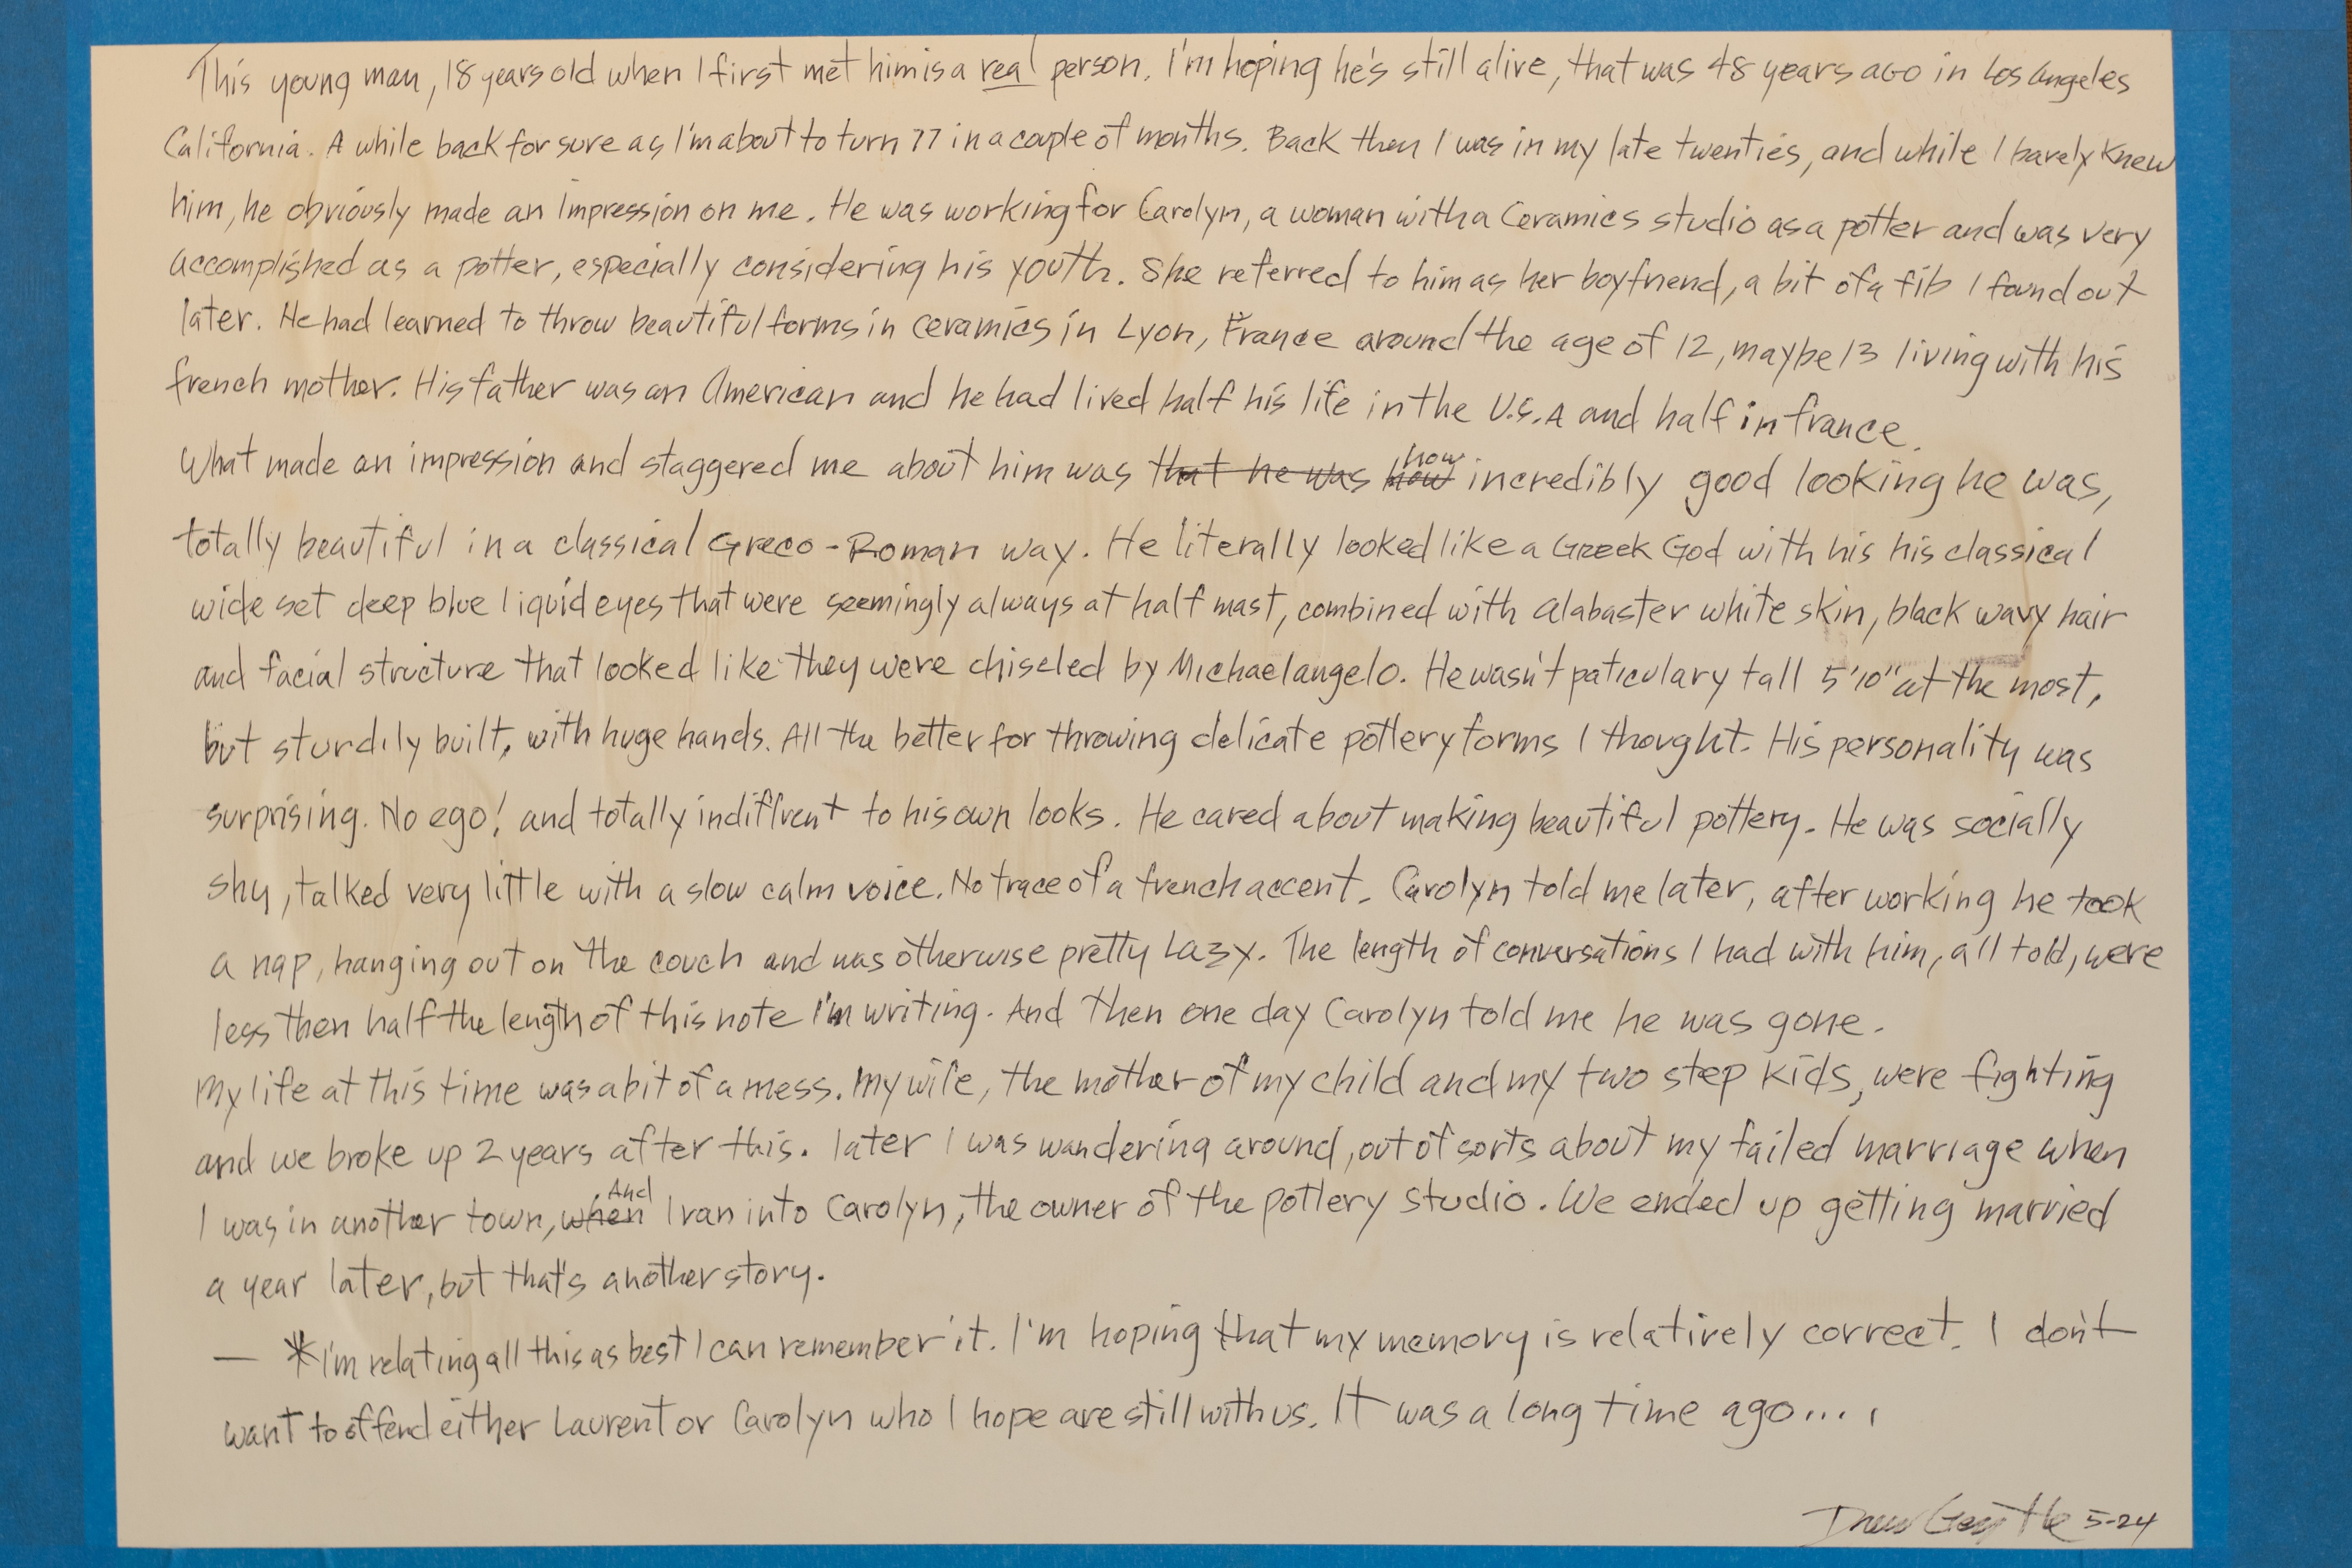 This young man, 18 years old when I first met him is a real person. I'm hoping he's still alive, that was 48 years ago in Los Angeles
California. A while back for sure as I'm about to turn 77 in a couple of months. Back then I was in my late twenties, and while I barely knew
him, he obviously made an impression on me. He was working for Carolyn, a woman with a Ceramics studio as a potter and was very
accomplished as a potter, especially considering his youth. She referred to him as her boyfriend, a bit of a fib I found out
later. He had learned to throw beautiful forms in ceramics in Lyon, France around the age of 12, maybe 13 living with his
french mother. His father was an American and he had lived half his life in the U.S.A and half in france.
What made an impression and staggered me about him was that he was how how incredibly good looking he was,
totally beautiful in a classical Greco-Roman way. He literally looked like a Greek God with his his classical
wide set deep blue liquid eyes that were seemingly always at half mast, combined with alabaster white skin, black wavy hair
and facial structure that looked like they were chiseled by Michaelangelo. He wasn't paticulary tall 5'10" at the most,
but sturdily built, with huge hands. All the better for throwing delicate pottery forms I thought. His personality was
surprising. No ego! and totally indiffrent to his own looks. He cared about making beautiful pottery. He was socially
shy, talked very little with a slow calm voice. No trace of a french accent. Carolyn told me later, after working he took
a nap, hanging out on the couch and was otherwise pretty lazy. The length of conversations I had with him, all told, were
less then half the length of this note I'm writing. And then one day Carolyn told me he was gone.
My life at this time was a bit of a mess. My wife, the mother of my child and my two step kids, were fighting
and we broke up 2 years after this. later I was wandering around, out of sorts about my failed marriage when
I was in another town, when And I ran into Carolyn, the owner of the pottery studio. We ended up getting married
a year later, but that's another story.
— *I'm relating all this as best I can remember it. I'm hoping that my memory is relatively correct. I don't
want to offend either Laurent or Carolyn who I hope are still with us. It was a long time ago....
Drew 5-24